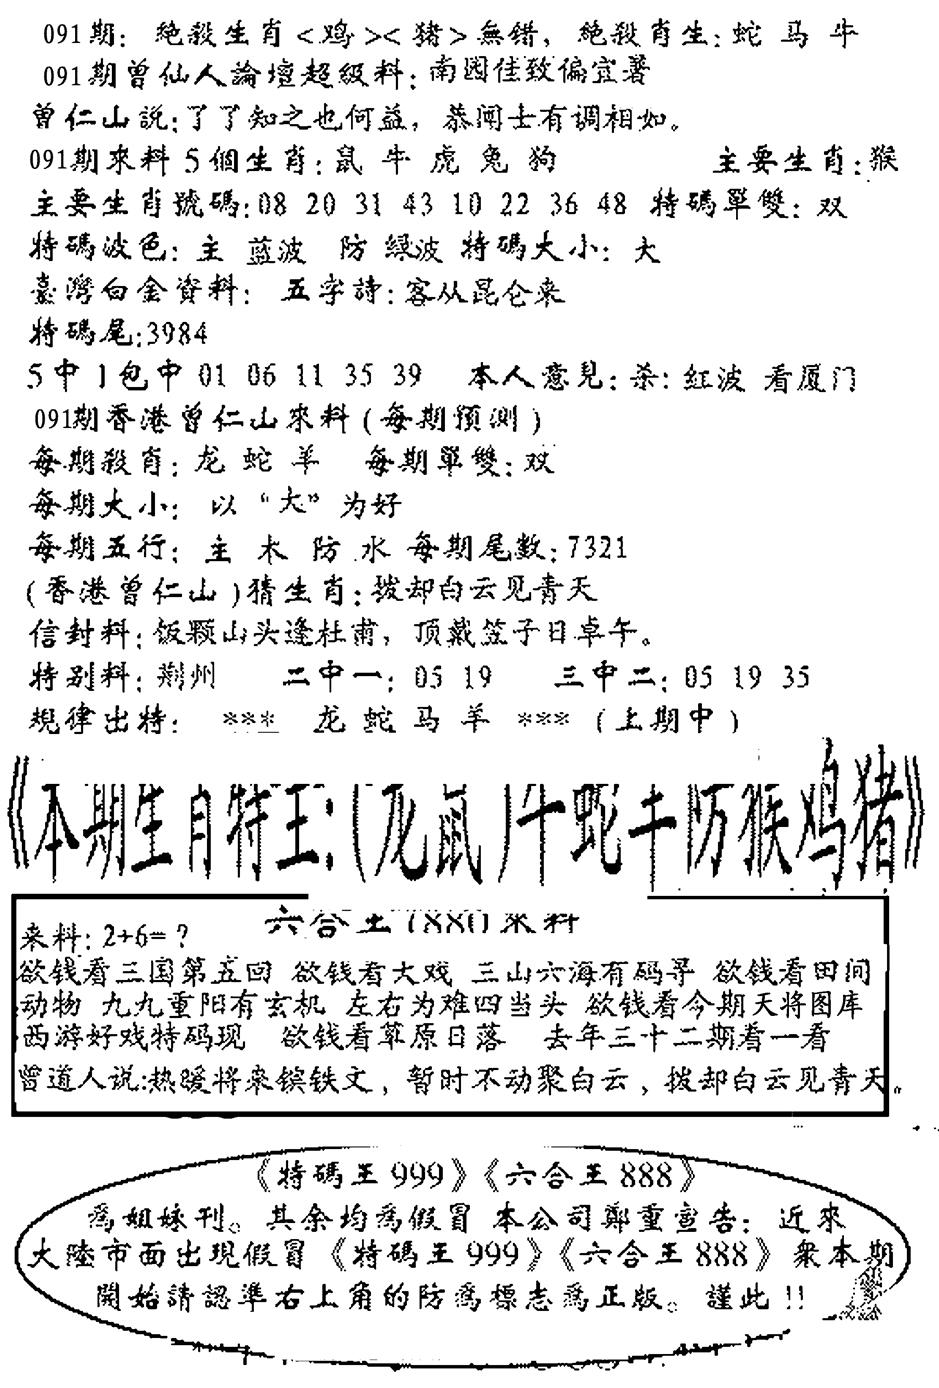 091期：絶殺生肖<鸡><猪>無错，絶殺肖生：蛇 马 牛
091期曾仙人論壇超級料：南园佳致偏宜著
曾仁山説：了了知之也何益，恭闻士有调相如。
091期來料 5個生肖：鼠 牛 虎 兔 狗 主要生肖：猴
主要生肖號碼：08 20 31 43 10 22 36 48 特碼單雙：双
特碼波色：主 蓝波 防 绿波 特碼大小：大
臺灣白金資料： 五字詩：客从昆仑来
特碼尾：3984
5中1包中 01 06 11 35 39 本人意見：杀：红波 看厦门
091期香港曾仁山來料（每期预测）
每期殺肖：龙 蛇 羊 每期單雙：双
每期大小： 以“大”为好
每期五行： 主 木 防 水 每期尾数：7321
（香港曾仁山）猜生肖：拨却白云见青天
信封料：饭颗山头逢杜甫，顶戴笠子日卓午。
特别料：荆州 二中一：05 19 三中二：05 19 35
规律出特： *** 龙 蛇 马 羊 ***（上期中）
《本期生肖特王：（龙鼠）牛蛇 防猴鸡猪》
六合王7880来料
来料：2+6=？
欲钱看三国第五回 欲钱看大戏 三山六海有码寻 欲钱看田间
动物 九九重阳有玄机 左右为难四当头 欲钱看今期天将图库
西游好戏特码现 欲钱看草原日落 去年三十二期看一看
曾道人说：热暖将来镔铁文，暂时不动聚白云，拨却白云见青天。
《特碼王999》《六合王888》
爲姐妹刊。其余均爲假冒 本公司鄭重宣告： 近來
大陸市面出現假冒《特碼王999》《六合王888》衆本期
開始請認準右上角的防爲標志爲正版。謹此!!